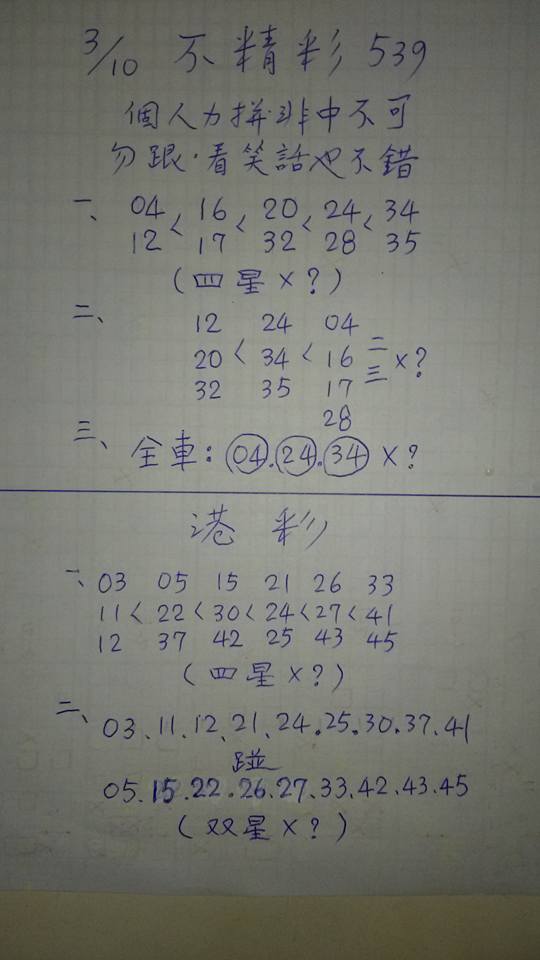 3/10 不精彩 539
個人力拼非中不可
勿跟·看笑話也不錯
一、 04 < 16 < 20 < 24 < 34
12 17 32 28 35
(四星×?)
二、 12 24 04
20 < 34 < 16 二三×?
32 35 17
28
三、全車:04.24.34 ×?
港彩
一、03 05 15 21 26 33
11 < 22 < 30 < 24 < 27 < 41
12 37 42 25 43 45
(四星×?)
二、03、11、12、21、24.25.30.37.41
踫
05.15.22.26.27.33.42.43.45
(双星×?)